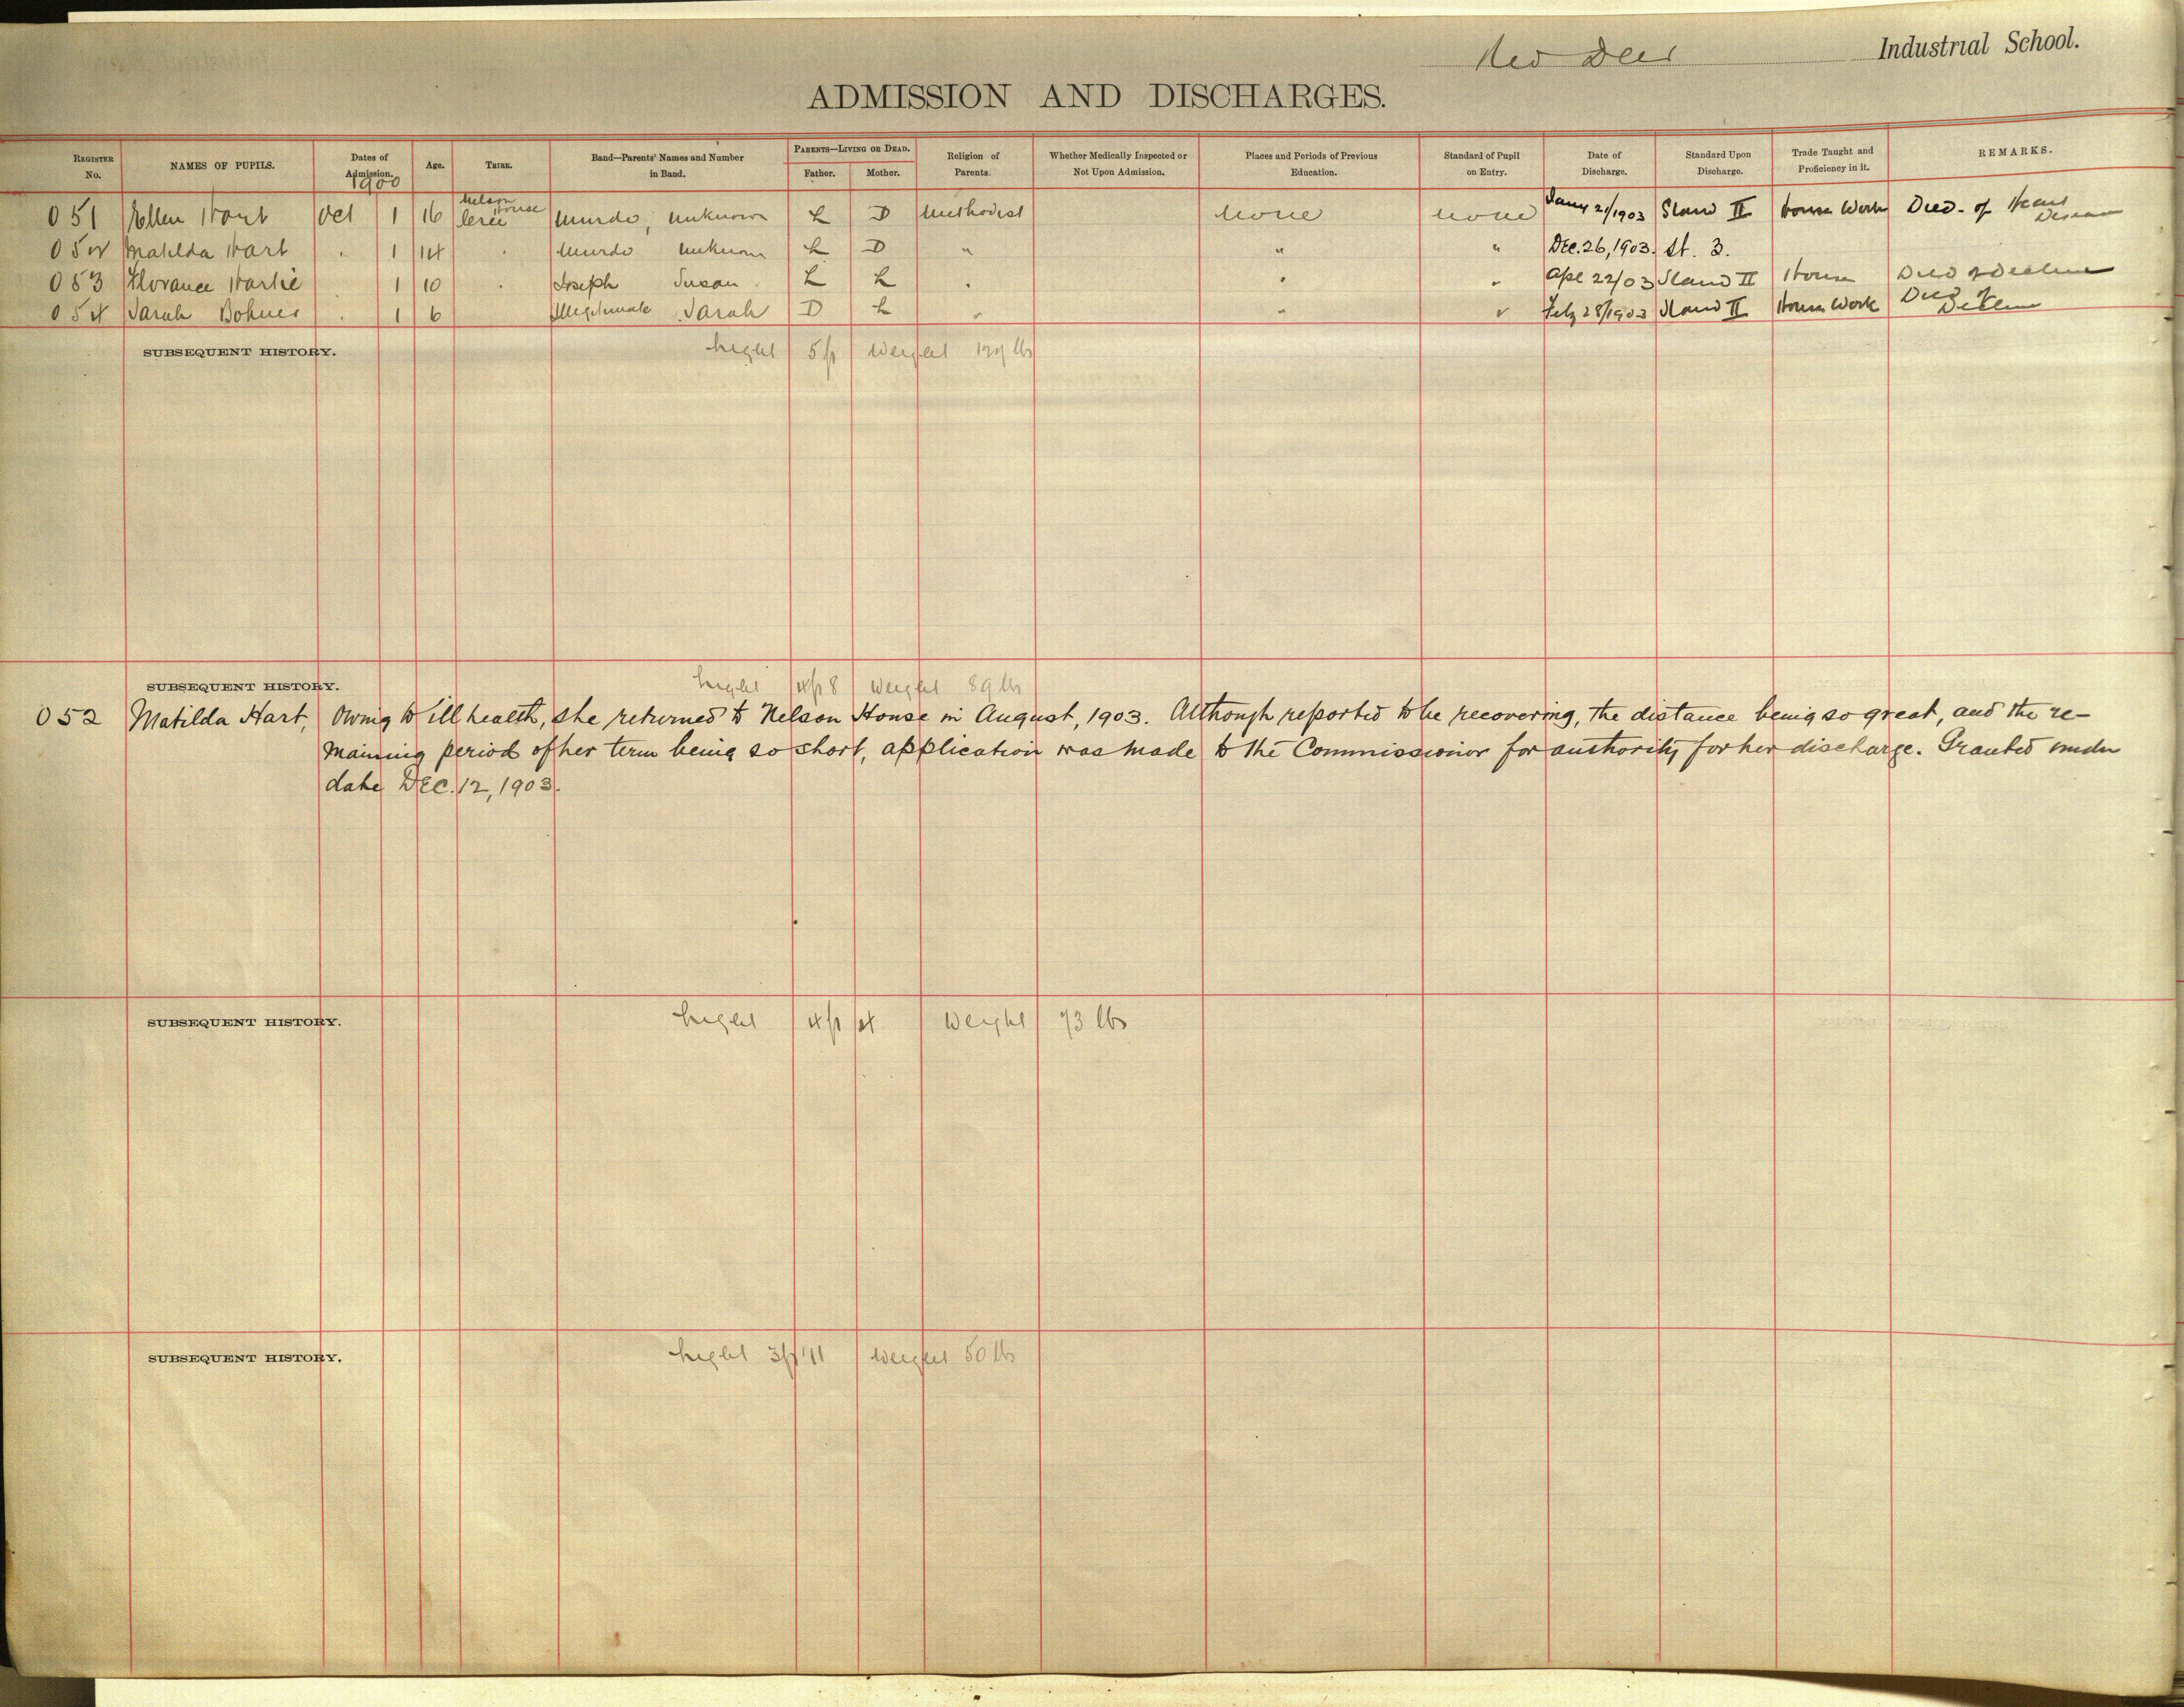 Red Deer Industrial School.
ADMISSION AND DISCHARGES.
REGISTER No. NAMES OF PUPILS. Dates of Admission. Age. TRIBE. Band—Parents' Names and Number in Band. PARENTS—LIVING OR DEAD. Father. Mother. Religion of Parents. Whether Medically Inspected or Not Upon Admission. Places and Periods of Previous Education. Standard of Pupil on Entry. Date of Discharge. Standard Upon Discharge. Trade Taught and Proficiency in it. REMARKS.
1900
051 Ellen Hart Oct 1 16 Nelson House Cree Murdo, unknown L D Methodist None none Jany 21/1903 Stand II House Work Died - of Heart Disease
052 Matilda Hart " 1 14 " Murdo unknown L D " " " Dec. 26, 1903. St. 3.
053 Florance 1 10 " Joseph Susan L L " " " Apl 22/03 Stand II House Died
054 Sarah " 1 6 Illegitimate Sarah D L " " " Feby 28/1903 Stand II House Work Died
SUBSEQUENT HISTORY. hight 5 ft weight lbs
SUBSEQUENT HISTORY. hight 4 ft 8 weight 89 lbs
052 Matilda Hart, Owing to ill health, she returned to Nelson House in August, 1903. Although reported to be recovering, the distance being so great, and the re-
maining period of her term being so short, application was made to the Commissionior for authority for her discharge. Granted under
date Dec. 12, 1903.
SUBSEQUENT HISTORY. hight 4 ft 4 weight 73 lbs
SUBSEQUENT HISTORY. hight 3 ft 11 weight 50 lbs